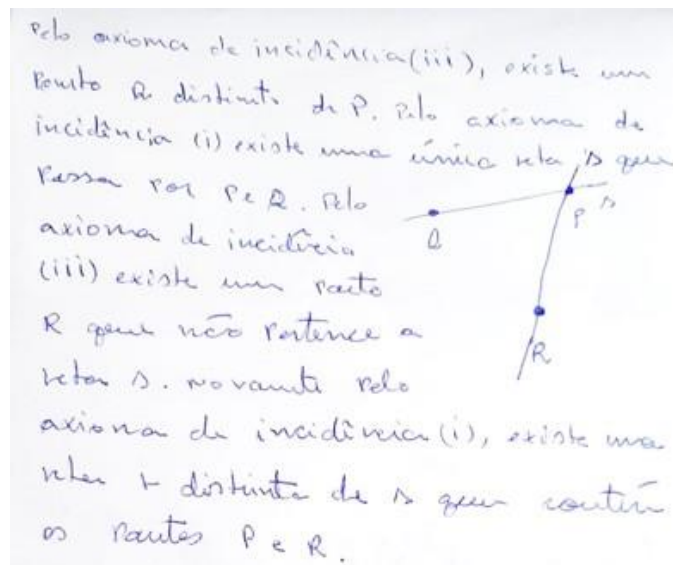 Pelo axioma de incidência (iii), existe um
Ponto Q distinto de P. Pelo axioma de
incidência (i) existe uma única reta s que
Passa por P e Q. Pelo
axioma de incidência
(iii) existe um ponto
R que não Pertence a
reta s. Novamente Pelo
axioma de incidência (i), existe uma
reta r distinta de s que contém
os Pontos P e R.
Q
P
s
R